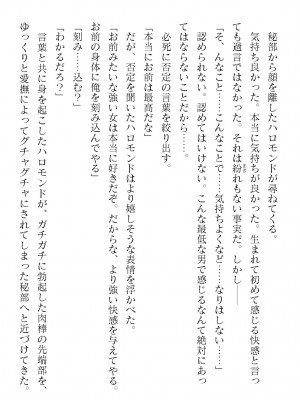 秘部から顔を離したハロモンドが尋ねてくる。
気持ち良かった。本当に気持ちが良かった。生まれて初めて感じる快感と言っ
ても過言ではなかった。それは紛れもない事実だ。しかし――
「そ、んなこと……こんなことで……気持ちよくなど……なりはしない……」
認められない。認めてはいけない。こんな最低な男で感じるなんて絶対にあっ
てはならないことだから……。
必死に否定の言葉を絞り出す。
だが、否定を聞いたハロモンドはより嬉しそうな表情を浮かべた。
「本当にお前は最高だな」
「お前みたいな強い女は本当に好きだぞ。だからな、より強い快感を与えてやる。
お前の身体に俺を刻み込んでやる」
「刻み……込む？」
「わかるだろ？」
言葉と共に身を起こしたハロモンドが、ガチガチに勃起した肉棒の先端部を、
ゆっくりと愛撫によってグチャグチャにされてしまった秘部へと近づけてきた。